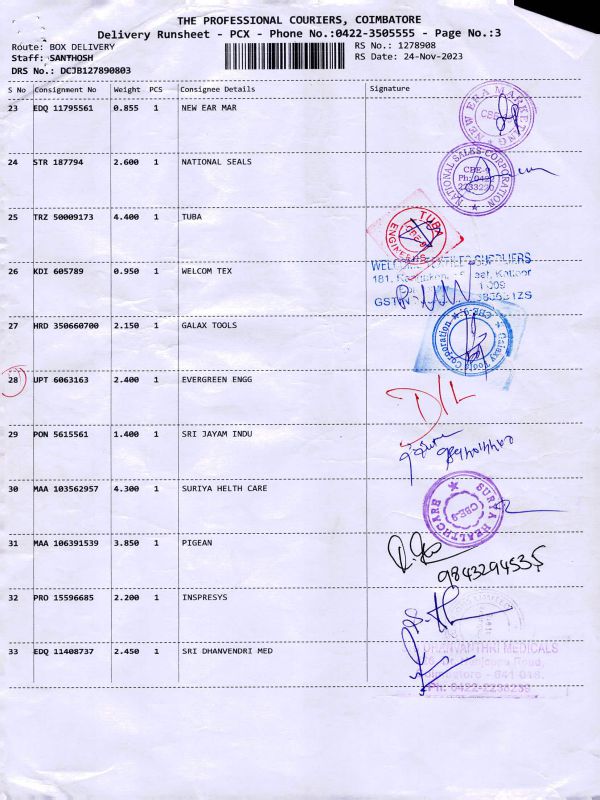 THE PROFESSIONAL COURIERS, COIMBATORE
Delivery Runsheet - PCX - Phone No.:0422-3505555 - Page No.:3
Route: BOX DELIVERY RS No.: 1278908
Staff: SANTHOSH RS Date: 24-Nov-2023
DRS No.: DCJB127890803
S No Consignment No Weight PCS Consignee Details Signature
23 EDQ 11795561 0.855 1 NEW EAR MAR
NEW ERA MARKETING
CBE
24 STR 187794 2.600 1 NATIONAL SEALS
NATIONAL SALES CORPORATION
CBE-9
Ph: 0422
2233220
25 TRZ 50009173 4.400 1 TUBA
TUBA ENGINEERS
CBE-9
26 KDI 605789 0.950 1 WELCOM TEX
WELCOME TEXTILES SUPPLIERS
181, Street, Kattoor
GST
27 HRD 350660700 2.150 1 GALAX TOOLS
Galaxy Tools Corporation
CBE-9
28 UPT 6063163 2.400 1 EVERGREEN ENGG
D/L
29 PON 5615561 1.400 1 SRI JAYAM INDU
30 MAA 103562957 4.300 1 SURIYA HELTH CARE
SURYA HEALTHCARE
CBE-9
31 MAA 106391539 3.850 1 PIGEAN
9843294535
32 PRO 15596685 2.200 1 INSPRESYS
33 EDQ 11408737 2.450 1 SRI DHANVENDRI MED
DHANVANTHRI MEDICALS
Road,
Coimbatore - 641 018.
Ph: 0422-2238239